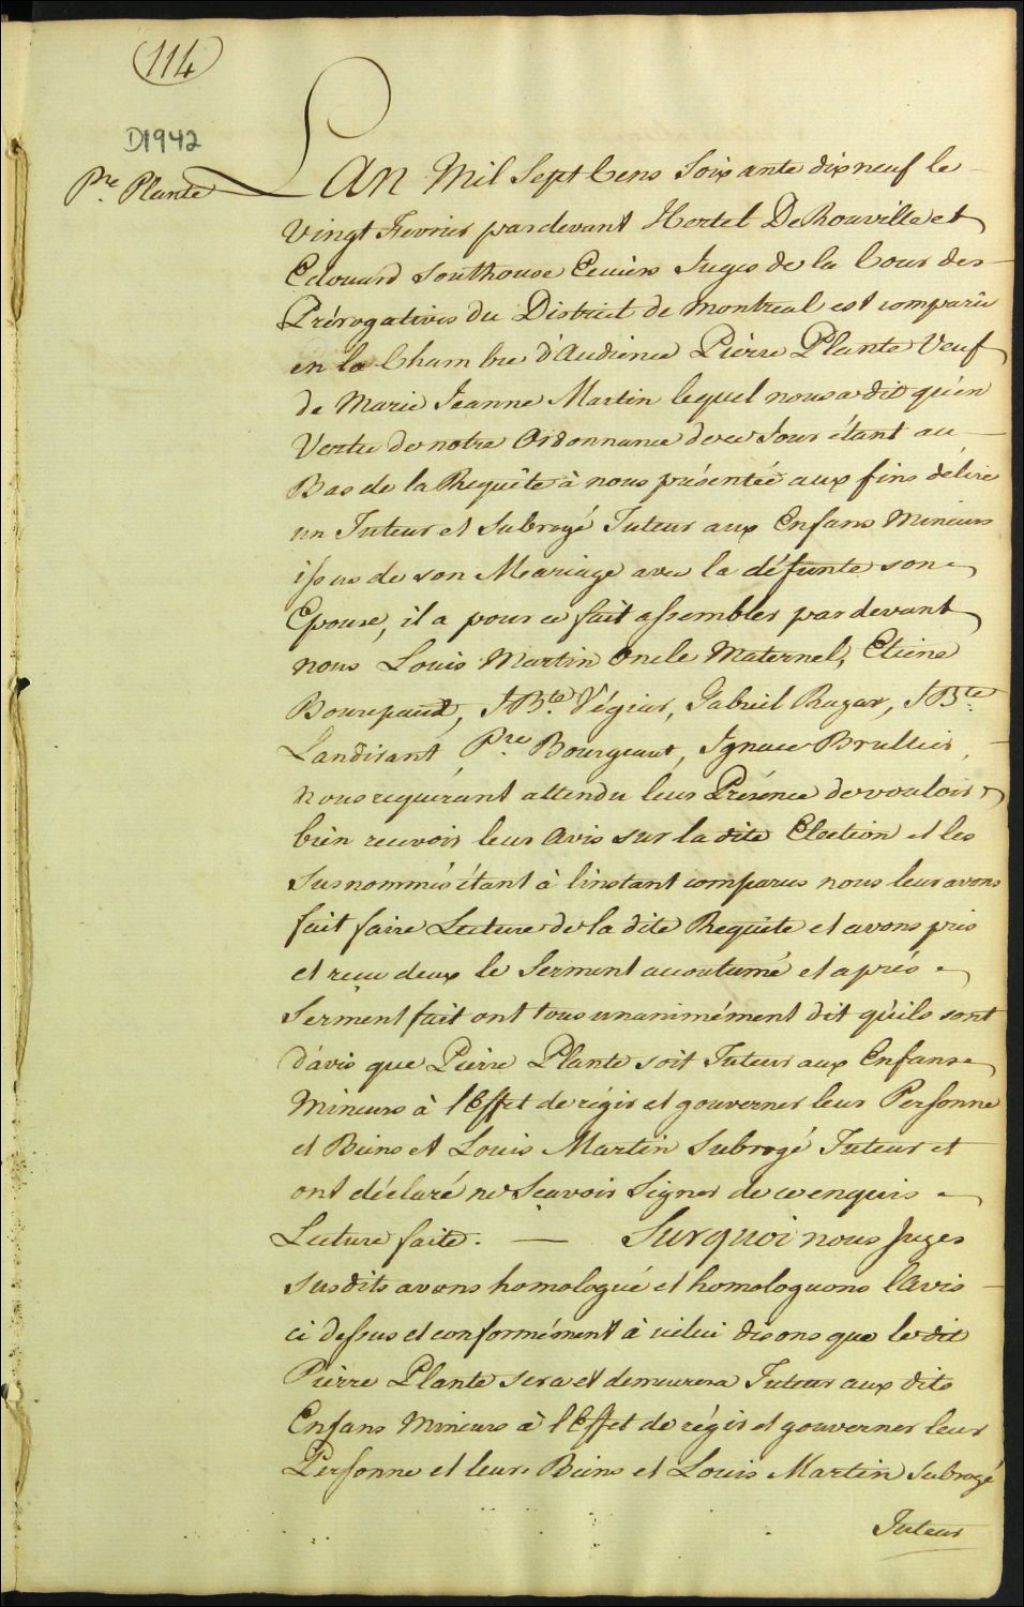 114
D1942
Pre. Plante
L'An Mil Sept Cens Soixante dix neuf le
Vingt Fevrier par devant Hertel De Rouville et
Edouard Southouse Ecuiers Juges de la Cour des
Prérogatives du District de Montreal est comparû
en la Chambre d'Audience Pierre Plante Veuf
de Marie Jeanne Martin lequel nous a dit qu'en
Vertu de notre Ordonnance de ce Jour étant au
Bas de la Requête à nous présentée aux fins d'élire
un Tuteur et Subrogé Tuteur aux Enfans Mineurs
issus de son Mariage avec la défunte son
Epouse, il a pour ce fait assembler par devant
nous Louis Martin Oncle Maternel, Etiene
Bourepaux, JBte. Végiar, Gabriel Ragar, JBte.
Landirant, Pre Bourgeaut, Ignace Brullier,
nous requérant attendu leur Présence de vouloir
bien recevoir leur Avis sur la dite Election et les
Susnommés étant à l'instant comparus nous leur avons
fait faire Lecture de la dite Requête et avons pris
et reçu deux le Serment accoutumé et après
Serment fait ont tous unanimément dit qu'ils sont
d'avis que Pierre Plante soit Tuteur aux Enfans
Mineurs à l'Effet de régir et gouverner leur Personne
et Biens et Louis Martin Subrogé Tuteur et
ont déclaré ne Sçavoir Signer de ce enquis
Lecture faite. — Surquoi nous Juges
Susdits avons homologué et homologuons l'Avis
ci dessus et conformément à icelui disons que le dit
Pierre Plante sera et demeurera Tuteur aux dits
Enfans Mineurs à l'Effet de régir et gouverner leur
Personne et leurs Biens et Louis Martin Subrogé
Tuteur